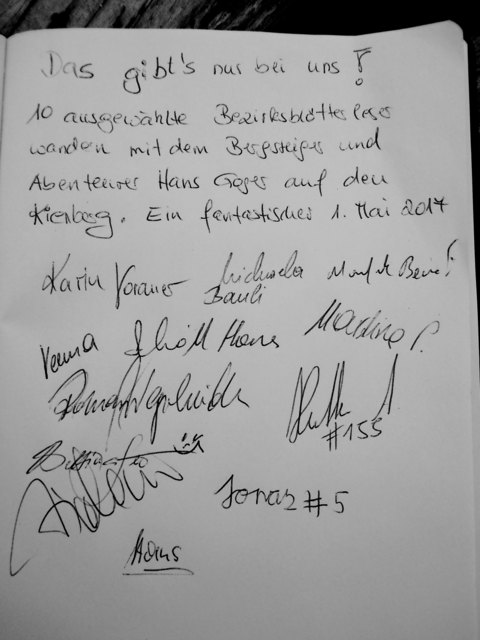 Das gibt's nur bei uns!
10 ausgewählte Bezirksblätter Leser
wandern mit dem Bergsteiger und
Abenteurer Hans Goger auf den
Kienberg. Ein fantastischer 1. Mai 2017
Karin Michaela
Bauli
Verena Hans Martina P.
Roman
#155
Jonas #5
Hans